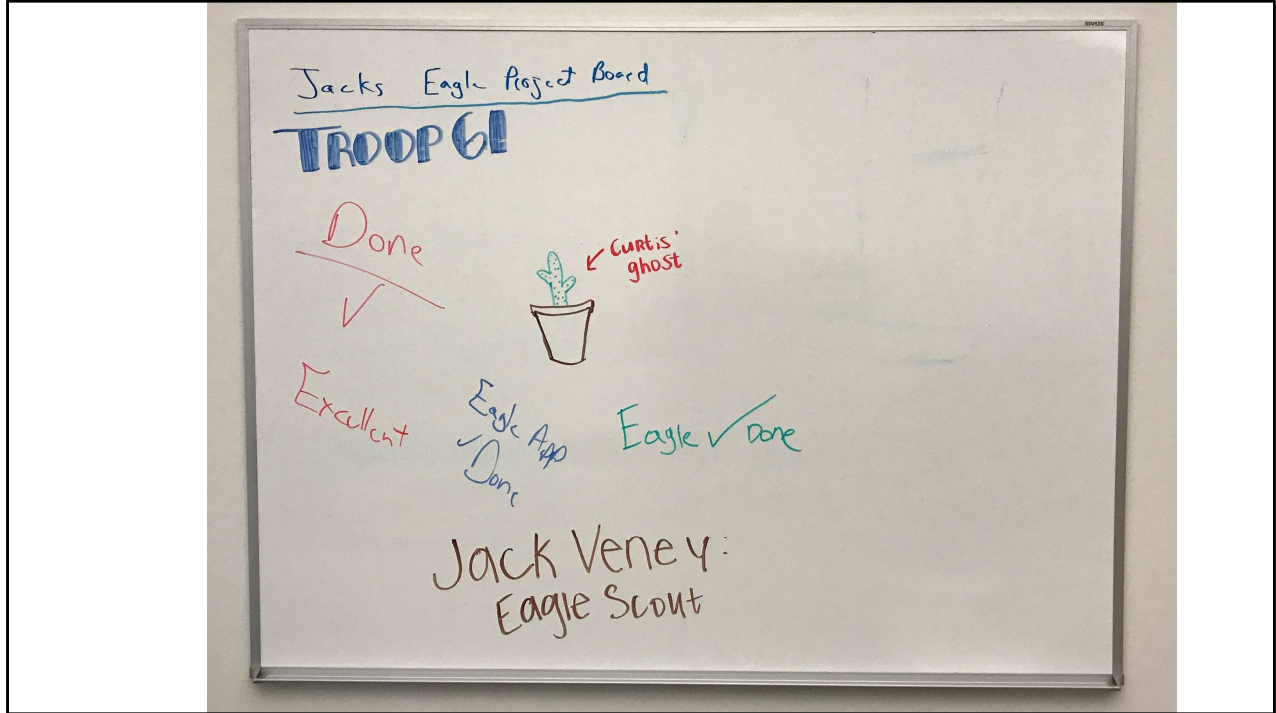 STAPLES
Jacks Eagle Project Board
TROOP 61
Done
✓
Curtis'
ghost
Excellent
Eagle App
✓ Done
Eagle ✓ Done
Jack Veney:
Eagle Scout